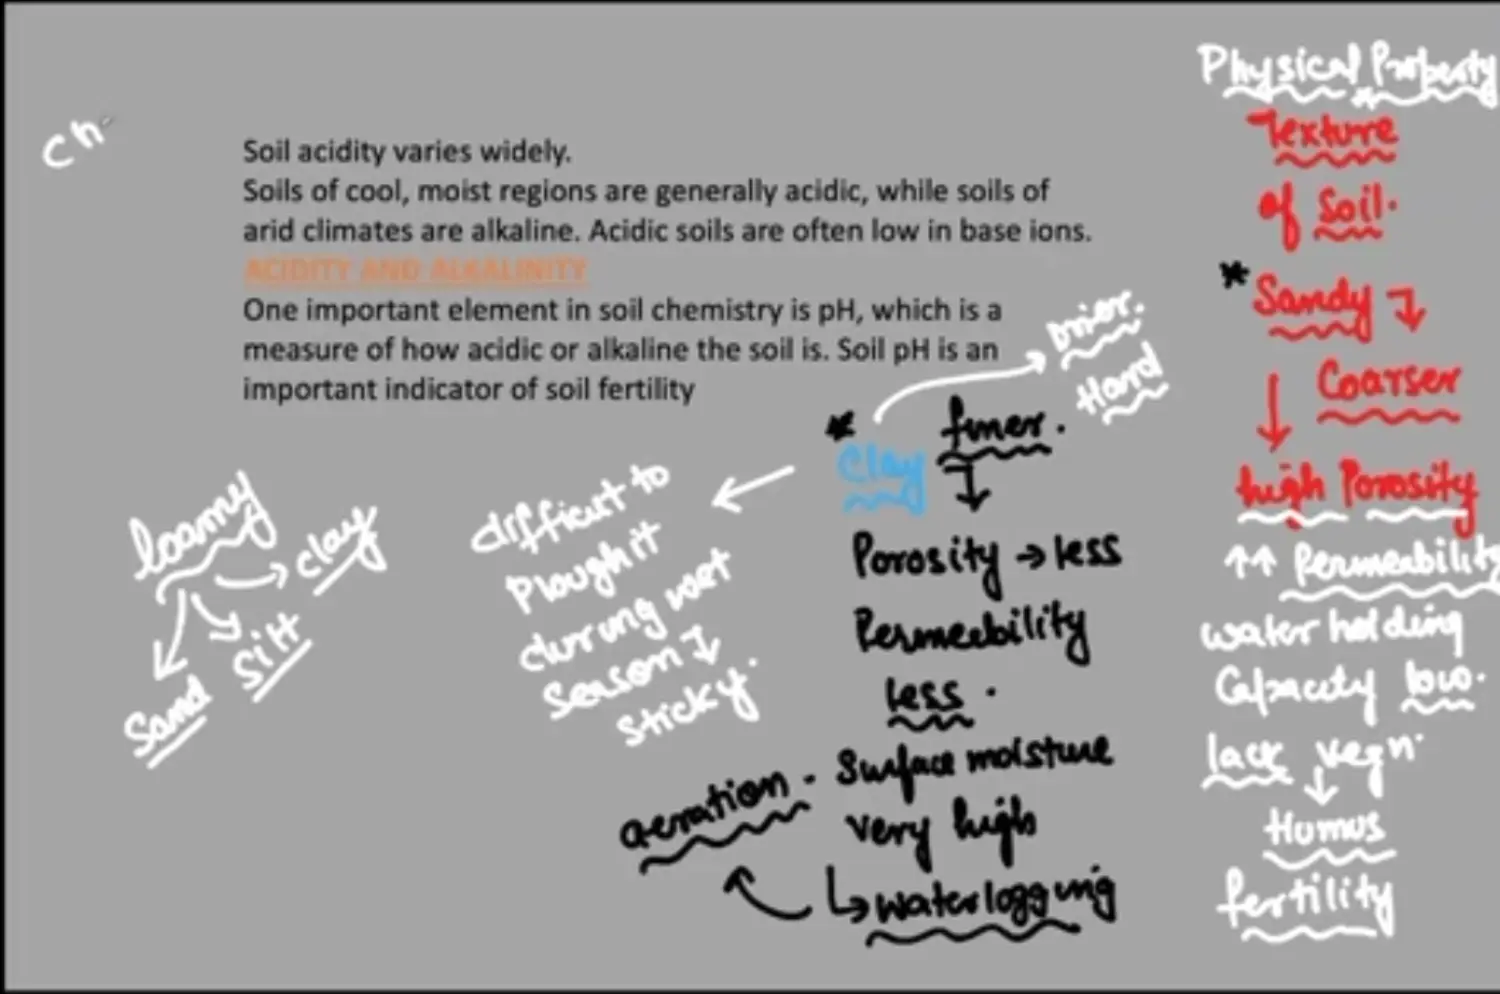 Physical Property
Texture
of Soil.
Ch
Soil acidity varies widely.
Soils of cool, moist regions are generally acidic, while soils of
arid climates are alkaline. Acidic soils are often low in base ions.
ACIDITY AND ALKALINITY
One important element in soil chemistry is pH, which is a
measure of how acidic or alkaline the soil is. Soil pH is an
important indicator of soil fertility
* Sandy
Coarser
high Porosity
↑↑ Permeability
water holding
Capacity low.
lack vegn.
Humus
fertility
Hard
* Clay finer.
Porosity → less
Permeability
less.
Surface moisture
very high
waterlogging
aeration.
difficult to
Plough it
during wet
Season
sticky.
loamy
clay
Silt
Sand